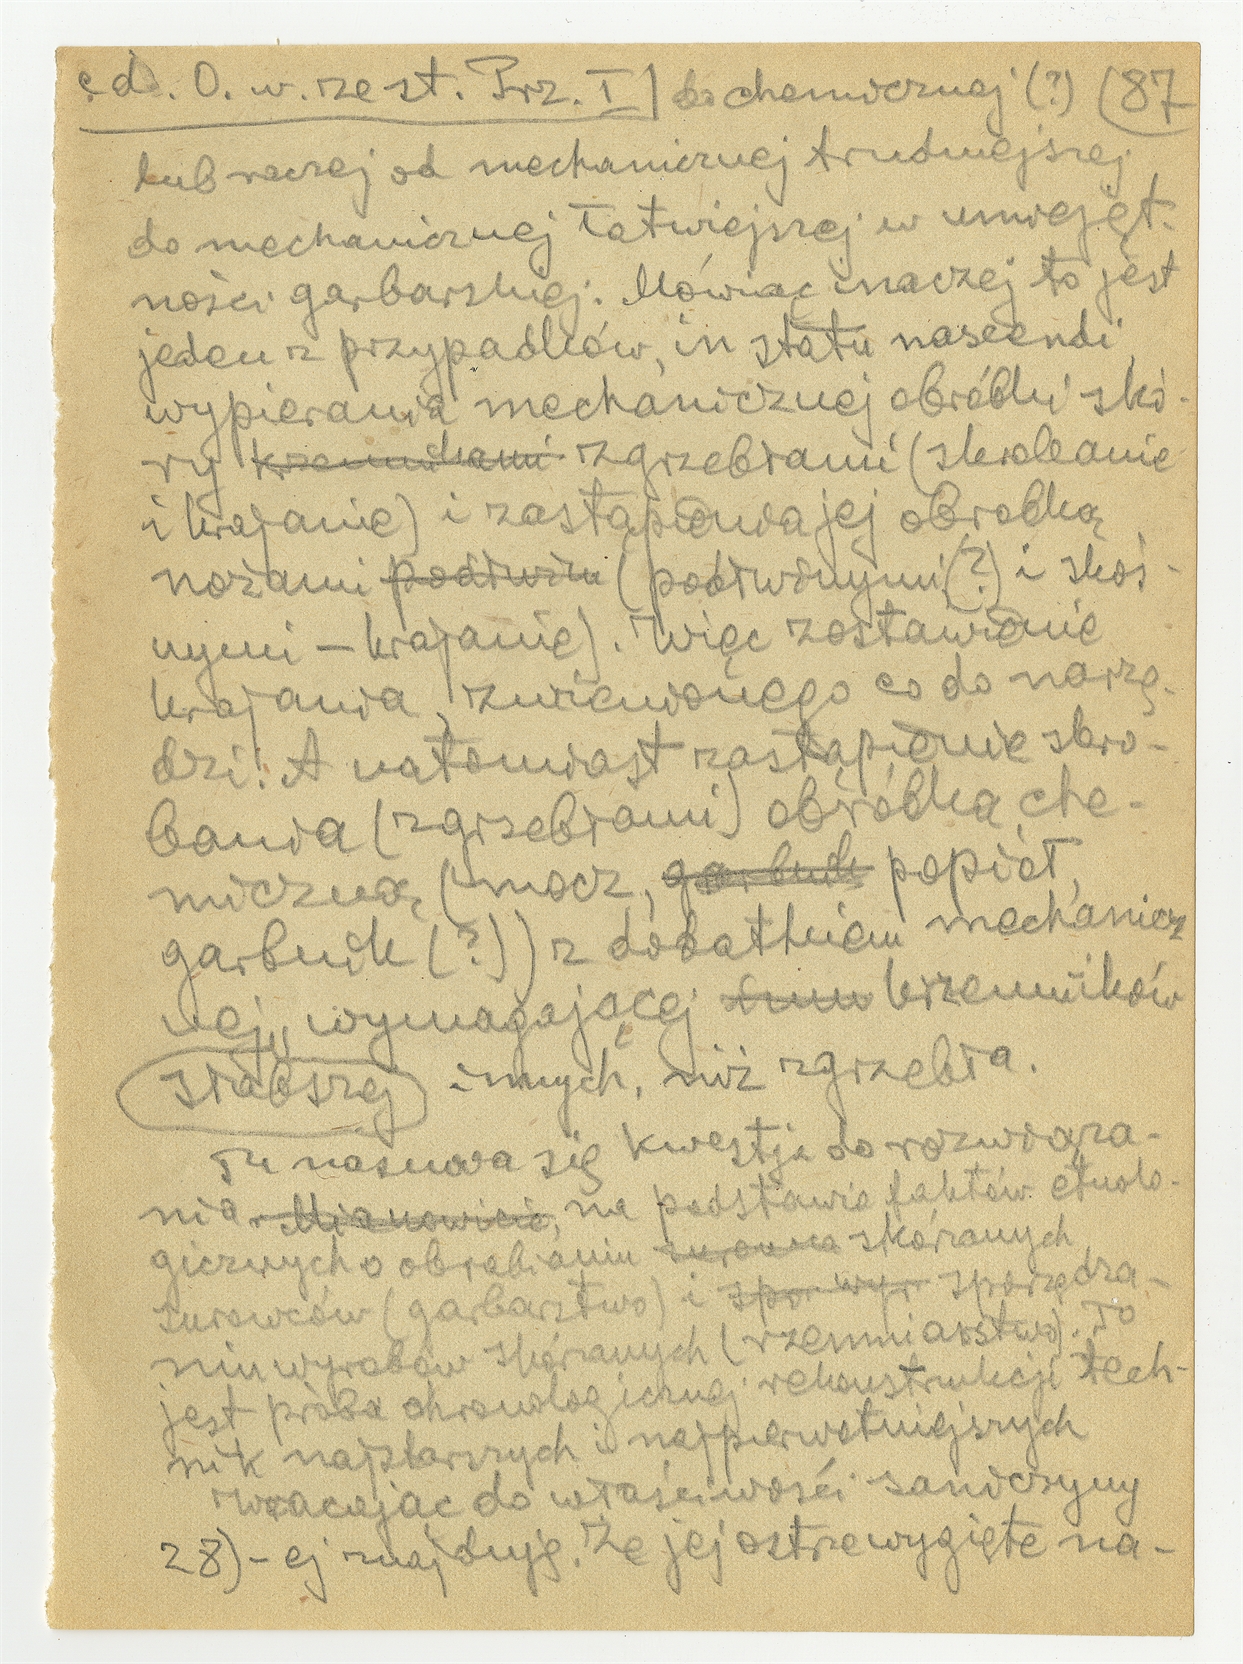 c.d. O. w. zest. Prz. I] do chemicznej (?) (87
lub raczej od mechanicznej trudniejszej
do mechanicznej łatwiejszej w umiejęt-
ności garbarskiej. Mówiąc inaczej to jest
jeden z przypadków, in statu nascendi,
wypierania mechanicznej obróbki skó-
ry krzemikami zgrzebłami (skrobanie
i krajanie) i zastąpienia jej obróbką
nożami (podłużnymi (?) i skoś-
nymi – krajanie). Więc zostawienie
krajania, zmienionego co do narzę-
dzi! A natomiast zastąpienie skro-
bania (zgrzebłami) obróbką che-
miczną (mocz, garbnik popiół,
garbnik (?)) z dodatkiem mechanicz
nej, wymagającej krzemików
słabszej innych, niż zgrzebła.
Tu nasuwa się kwestja do rozwiąza-
nia. Mianowicie, na podstawie faktów etnolo-
gicznych o obrabianiu surowca skórzanych
surowców (garbarstwo) i spor wyr sporządza-
niu wyrobów skórzanych (rzemiarstwo). To
jest próba chronologicznej rekonstrukcji tech-
nik najstarszych i najpierwotniejszych
Wracając do właściwości saniczyny
28)-ej znajduję. Że jej ostrze wygięte na-